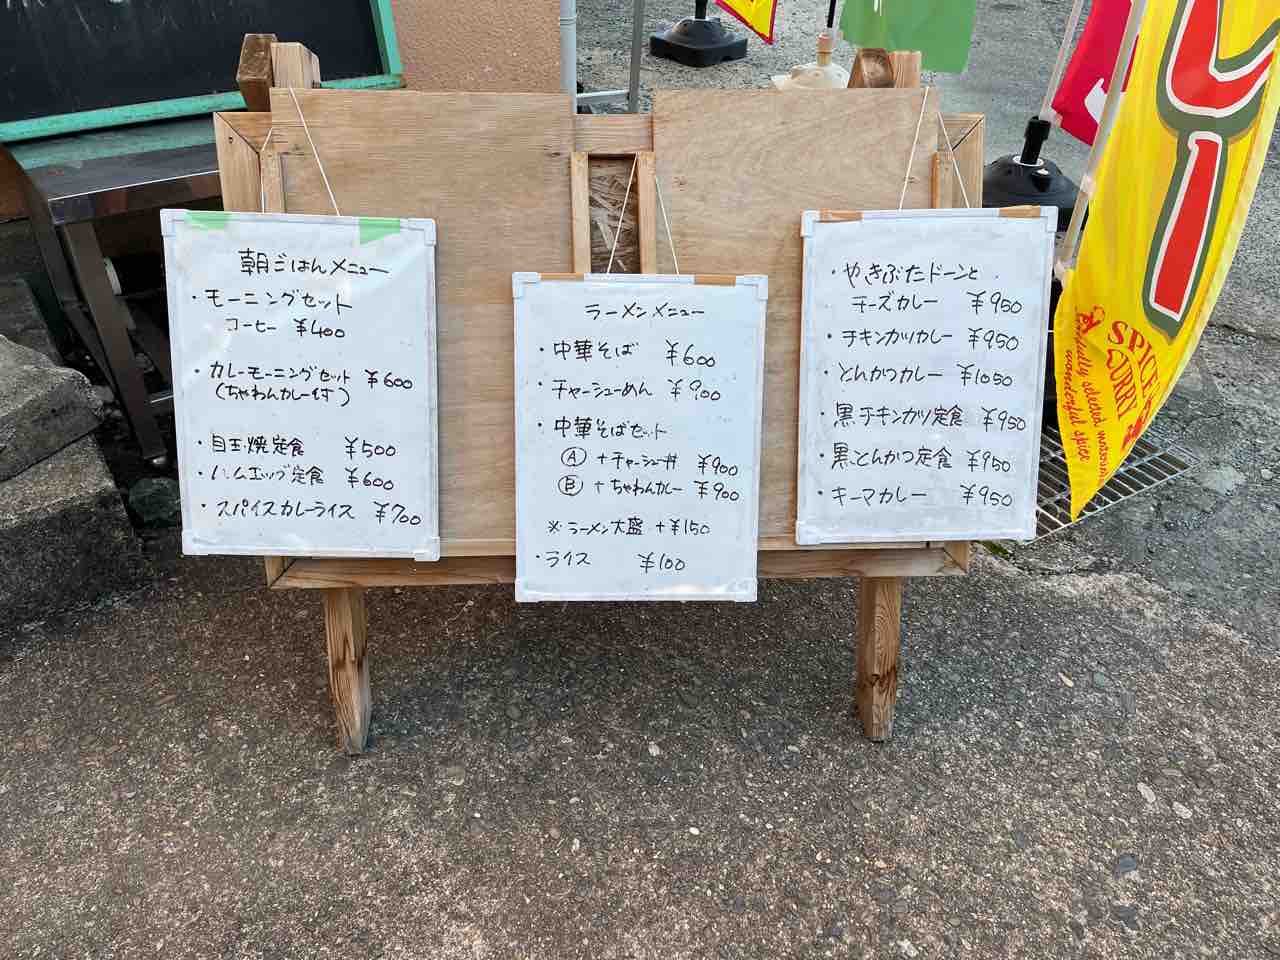 朝ごはんメニュー
・モーニングセット
コーヒー ¥400
・カレーモーニングセット ¥600
(ちゃわんカレー付)
・目玉焼定食 ¥500
・ハムエッグ定食 ¥600
・スパイスカレーライス ¥700
ラーメンメニュー
・中華そば ¥600
・チャーシューめん ¥900
・中華そばセット
Ⓐ +チャーシュー丼 ¥900
Ⓑ +ちゃわんカレー ¥900
※ラーメン大盛 +¥150
・ライス ¥100
・やきぶたドーンと
チーズカレー ¥950
・チキンカツカレー ¥950
・とんかつカレー ¥1050
・黒チキンカツ定食 ¥950
・黒とんかつ定食 ¥950
・キーマカレー ¥950
レー
SPICE
CURRY
carefully selected materials
wonderful spice